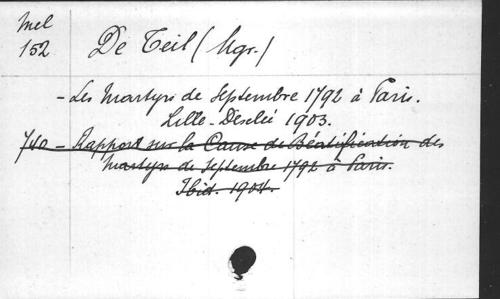 Mel
152
De Teil (Mgr.)
- Les Martyrs de Septembre 1792 à Paris.
Lille - Desclée 1903.
740 - Rapport sur la Cause de Béatification des
Martyrs de Septembre 1792 à Paris.
Ibid. 1904.